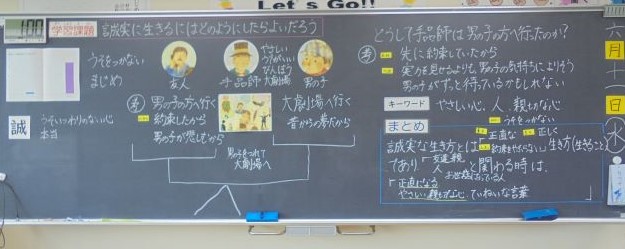 Let's Go!!
100
学習課題
誠実に生きるにはどのようにしたらよいだろう
うそをつかない
まじめ
誠
うそいつわりのない心
本当
友人
手品師
やさしい
大劇場
男の子
考
男の子の方へ行く
約束したから
男の子が悲しむから
大劇場へ行く
昔からの夢だから
男の子をつれて
大劇場へ
どうして手品師は男の子の方へ行ったのか?
考
先に約束していたから
実力を見せるよりも、男の子の気持ちによりそう
男の子がずっと待っているかもしれない
キーワード
やさしい心、人、親切な心
うそをつかない
まとめ
誠実な生き方とは
正直な
正しく
約束をやぶらない
生き方(生きること)
であり
友達、親
人
と関わる時は、
お世話になっている人
「正直になる
やさしい、親切な心
ていねいな言葉」
六月十一日
水